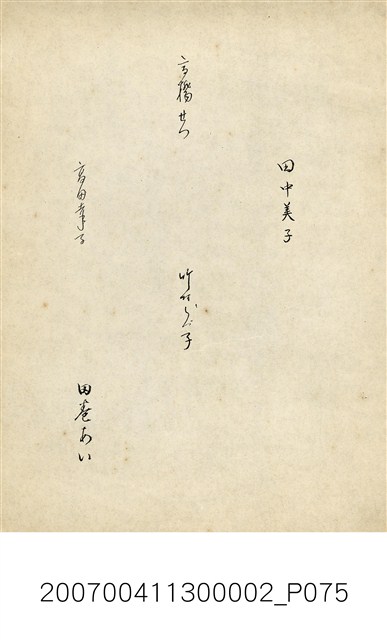 田中美子
高橋せつ
竹村ふじ子
高田幸子
田巻あい
200700411300002_P075